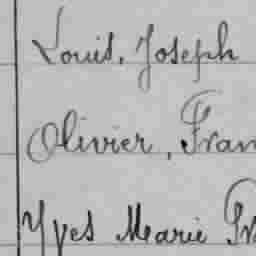 Louis, Joseph
Olivier, Fran
Yves Marie Fr